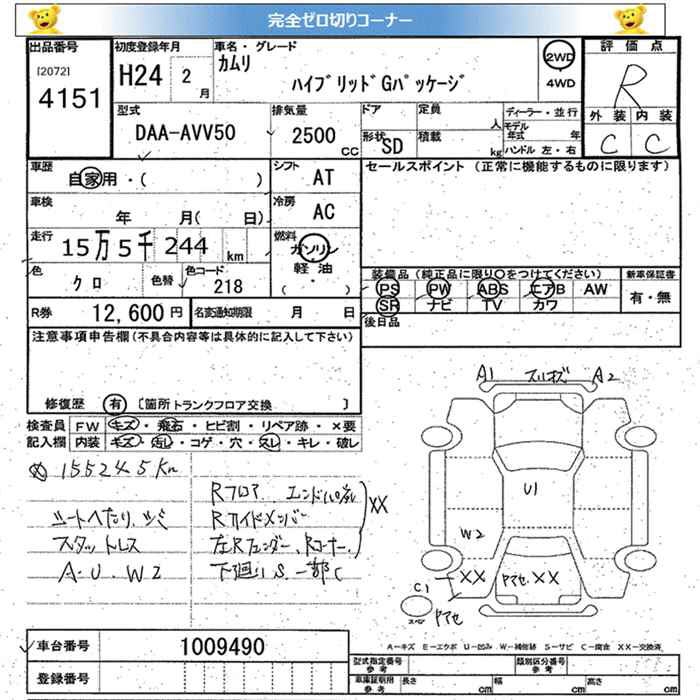 完全ゼロ切りコーナー
出品番号
[2072]
4151
初度登録年月
H24 2月
車名・グレード
カムリ
ハイブリッドGパッケージ
2WD
4WD
評価点
R
外装 内装
C C
型式
DAA-AVV50
排気量
2500 CC
ドア
定員
人
形状 SD
積載
kg
ディーラー・並行
モデル年式 年
ハンドル 左・右
車歴
自家用・( )
シフト
AT
車検
年 月( 日)
冷房
AC
走行
15万5千244 km
燃料
ガソリン
軽油
( ・ )
色
クロ
色替
色コード
218
R券 12,600円
名変通知期限 月 日
セールスポイント (正常に機能するものに限ります)
装備品(純正品に限り○をつけてください)
新車保証書
PS PW ABS エアB AW
SR ナビ TV カワ
有・無
後日品
注意事項申告欄(不具合内容等は具体的に記入して下さい)
修復歴 有 [箇所 トランクフロア交換 ]
検査員記入欄
FW キズ・飛石・ヒビ割・リペア跡・×要
内装 キズ・汚レ・コゲ・穴・スレ・キレ・破レ
155245Km
シートヘたり、シミ
スタットレス
A.U.W2
Rフロア、エンドパネル
Rサイドメンバー
XX
左Rフェンダー、Rコーナー
下廻りS.一部C
A1 スリキズ A2
U1
W2
XX
ヤマセ、XX
C1
スペア
ヤマセ
車台番号 1009490
登録番号
A-キズ E-エクボ U-凹み W-補修跡 S-サビ C-腐食 XX-交換済
型式指定番号 参考
類別区分番号 参考
車庫証明用 参考
長さ cm 幅 cm 高さ cm